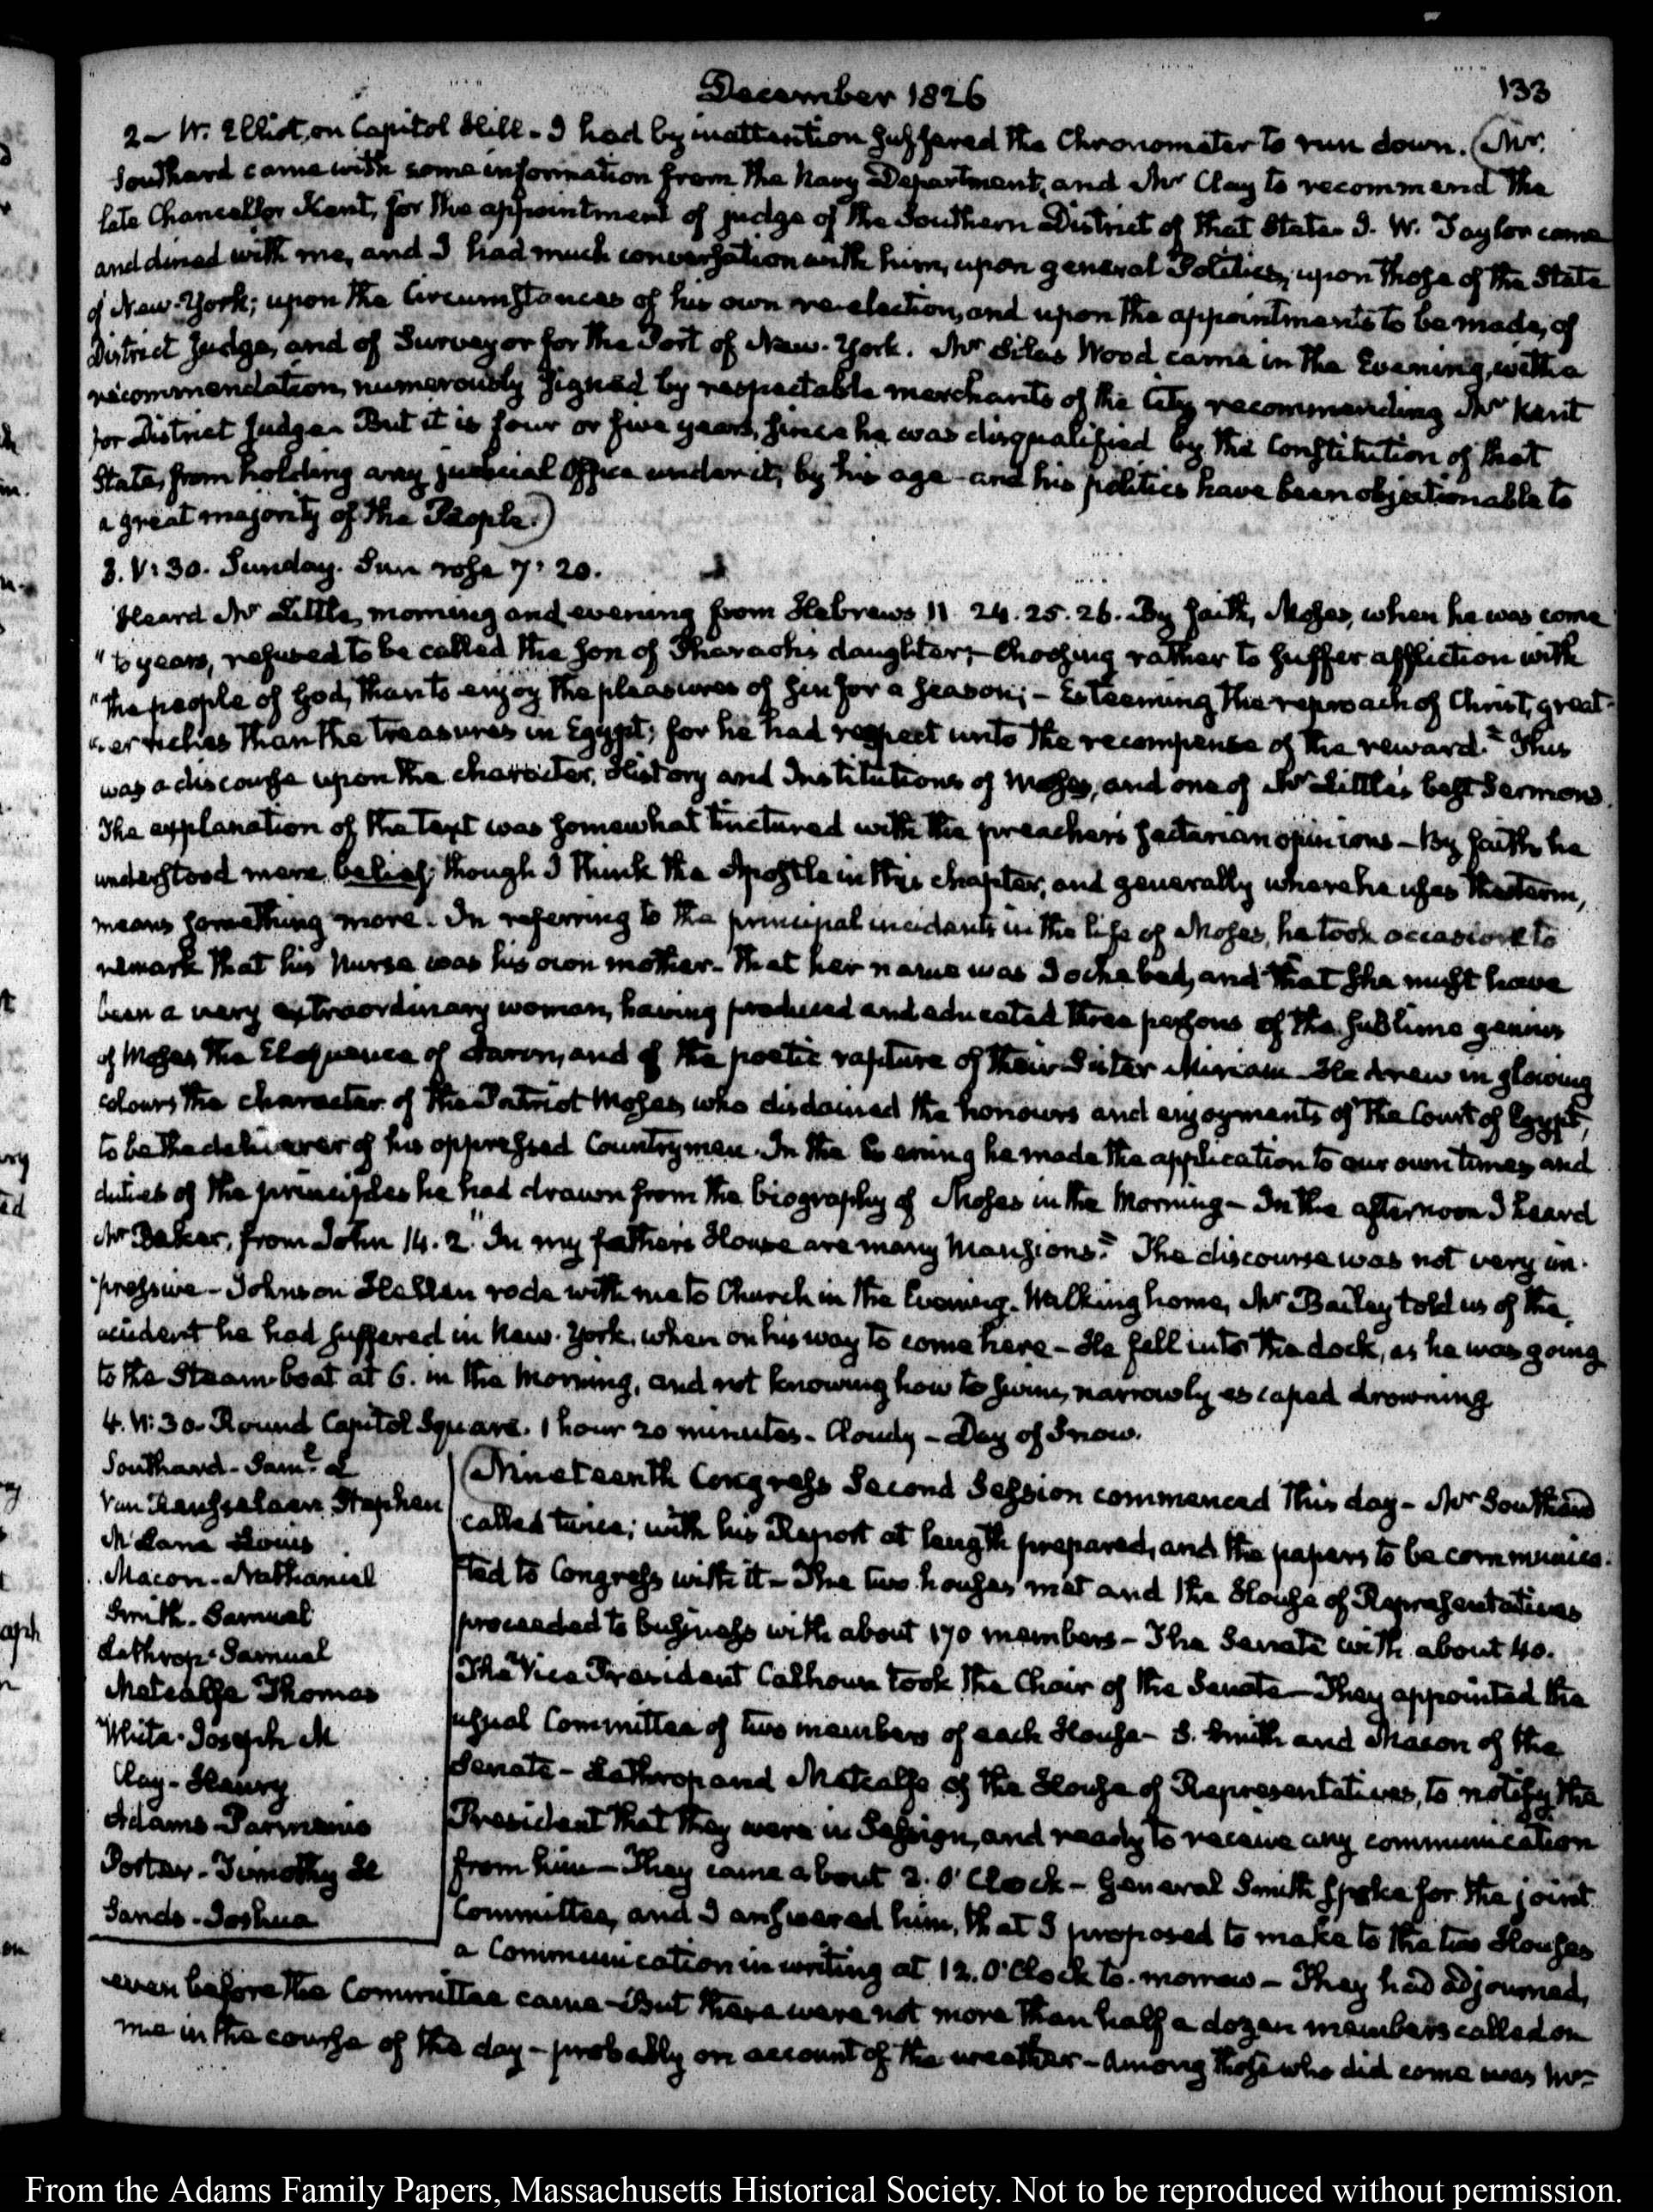 December 1826
133
2 — W. Elliot, on Capitol Hill - I had by inattention suffered the Chronometer to run down. (Mr.
Southard came with some information from the Navy Department, and Mr Clay to recommend the
late Chancellor Kent, for the appointment of judge of the Southern District of that State. J. W. Taylor came
and dined with me, and I had much conversation with him, upon general Politics, upon those of the State
of New-York; upon the Circumstances of his own re-election, and upon the appointments to be made, of
District Judge, and of Surveyor for the Port of New-York. Mr Silas Wood came in the Evening, with a
recommendation, numerously signed by respectable merchants of the City recommending Mr Kent
for District Judge. But it is four or five years, since he was disqualified by the Constitution of that
State, from holding any judicial Office under it, by his age - and his politics have been objectionable to
a great majority of the People.)
3. V: 30. Sunday. Sun rose 7: 20.
Heard Mr Little, morning and evening from Hebrews 11. 24. 25. 26. By faith, Moses, when he was come
"to years, refused to be called the son of Pharaoh's daughter; - Choosing rather to suffer affliction with
"the people of God, than to enjoy the pleasures of sin for a season; - Esteeming the reproach of Christ, great-
"er riches than the treasures in Egypt; for he had respect unto the recompense of the reward." This
was a discourse upon the character, History and Institutions of Moses, and one of Mr Little's best Sermons.
The explanation of the text was somewhat tinctured with the preacher's sectarian opinions - By faith, he
understood mere belief; though I think the Apostle in this chapter, and generally where he uses the term,
means something more. In referring to the principal incidents in the life of Moses, he took occasion to
remark that his Nurse was his own mother. That her name was Jochabed, and that she must have
been a very extraordinary woman, having produced and educated three persons of the sublime genius
of Moses, the Eloquence of Aaron, and of the poetic rapture of their Sister Miriam. He drew in glowing
colours the character of the Patriot Moses, who disdained the honours and enjoyments of the Court of Egypt,
to be the deliverer of his oppressed Countrymen. In the Evening he made the application to our own times and
duties of the principles he had drawn from the biography of Moses in the Morning - In the afternoon I heard
Mr Baker, from John 14. 2. "In my father's House are many Mansions." The discourse was not very im-
pressive - Johnson Hellen rode with me to Church in the Evening. Walking home, Mr Bailey told us of the
accident he had suffered in New-York, when on his way to come here - He fell into the dock, as he was going
to the Steam-boat at 6. in the Morning, and not knowing how to swim, narrowly escaped drowning
4. V: 30. Round Capitol Square. 1 hour 20 minutes. Cloudy - Day of Snow.
Southard - Saml. L
Van Rensselaer Stephen
McLane Louis
Macon - Nathaniel
Smith - Samuel
Lathrop - Samuel
Metcalfe Thomas
White - Joseph M
Clay - Henry
Adams - Parmenio
Porter - Timothy H
Sands - Joshua
(Nineteenth Congress Second Session commenced this day - Mr Southard
called twice; with his Report at length prepared, and the papers to be communica-
ted to Congress with it - The two houses met and the House of Representatives
proceeded to business with about 170 members - The Senate with about 40.
The Vice President Calhoun took the Chair of the Senate - They appointed the
usual Committee of two members of each House - S. Smith and Macon of the
Senate - Lathrop and Metcalfe of the House of Representatives, to notify the
President that they were in Session, and ready to receive any communication
from him - They came about 2. O'Clock - General Smith spoke for the joint
Committee, and I answered him, that I proposed to make to the two Houses
a Communication in writing at 12. O'Clock to-morrow - They had adjourned,
even before the Committee came - But there were not more than half a dozen members called on
me in the course of the day - probably on account of the weather - Among those who did come was Mr
From the Adams Family Papers, Massachusetts Historical Society. Not to be reproduced without permission.